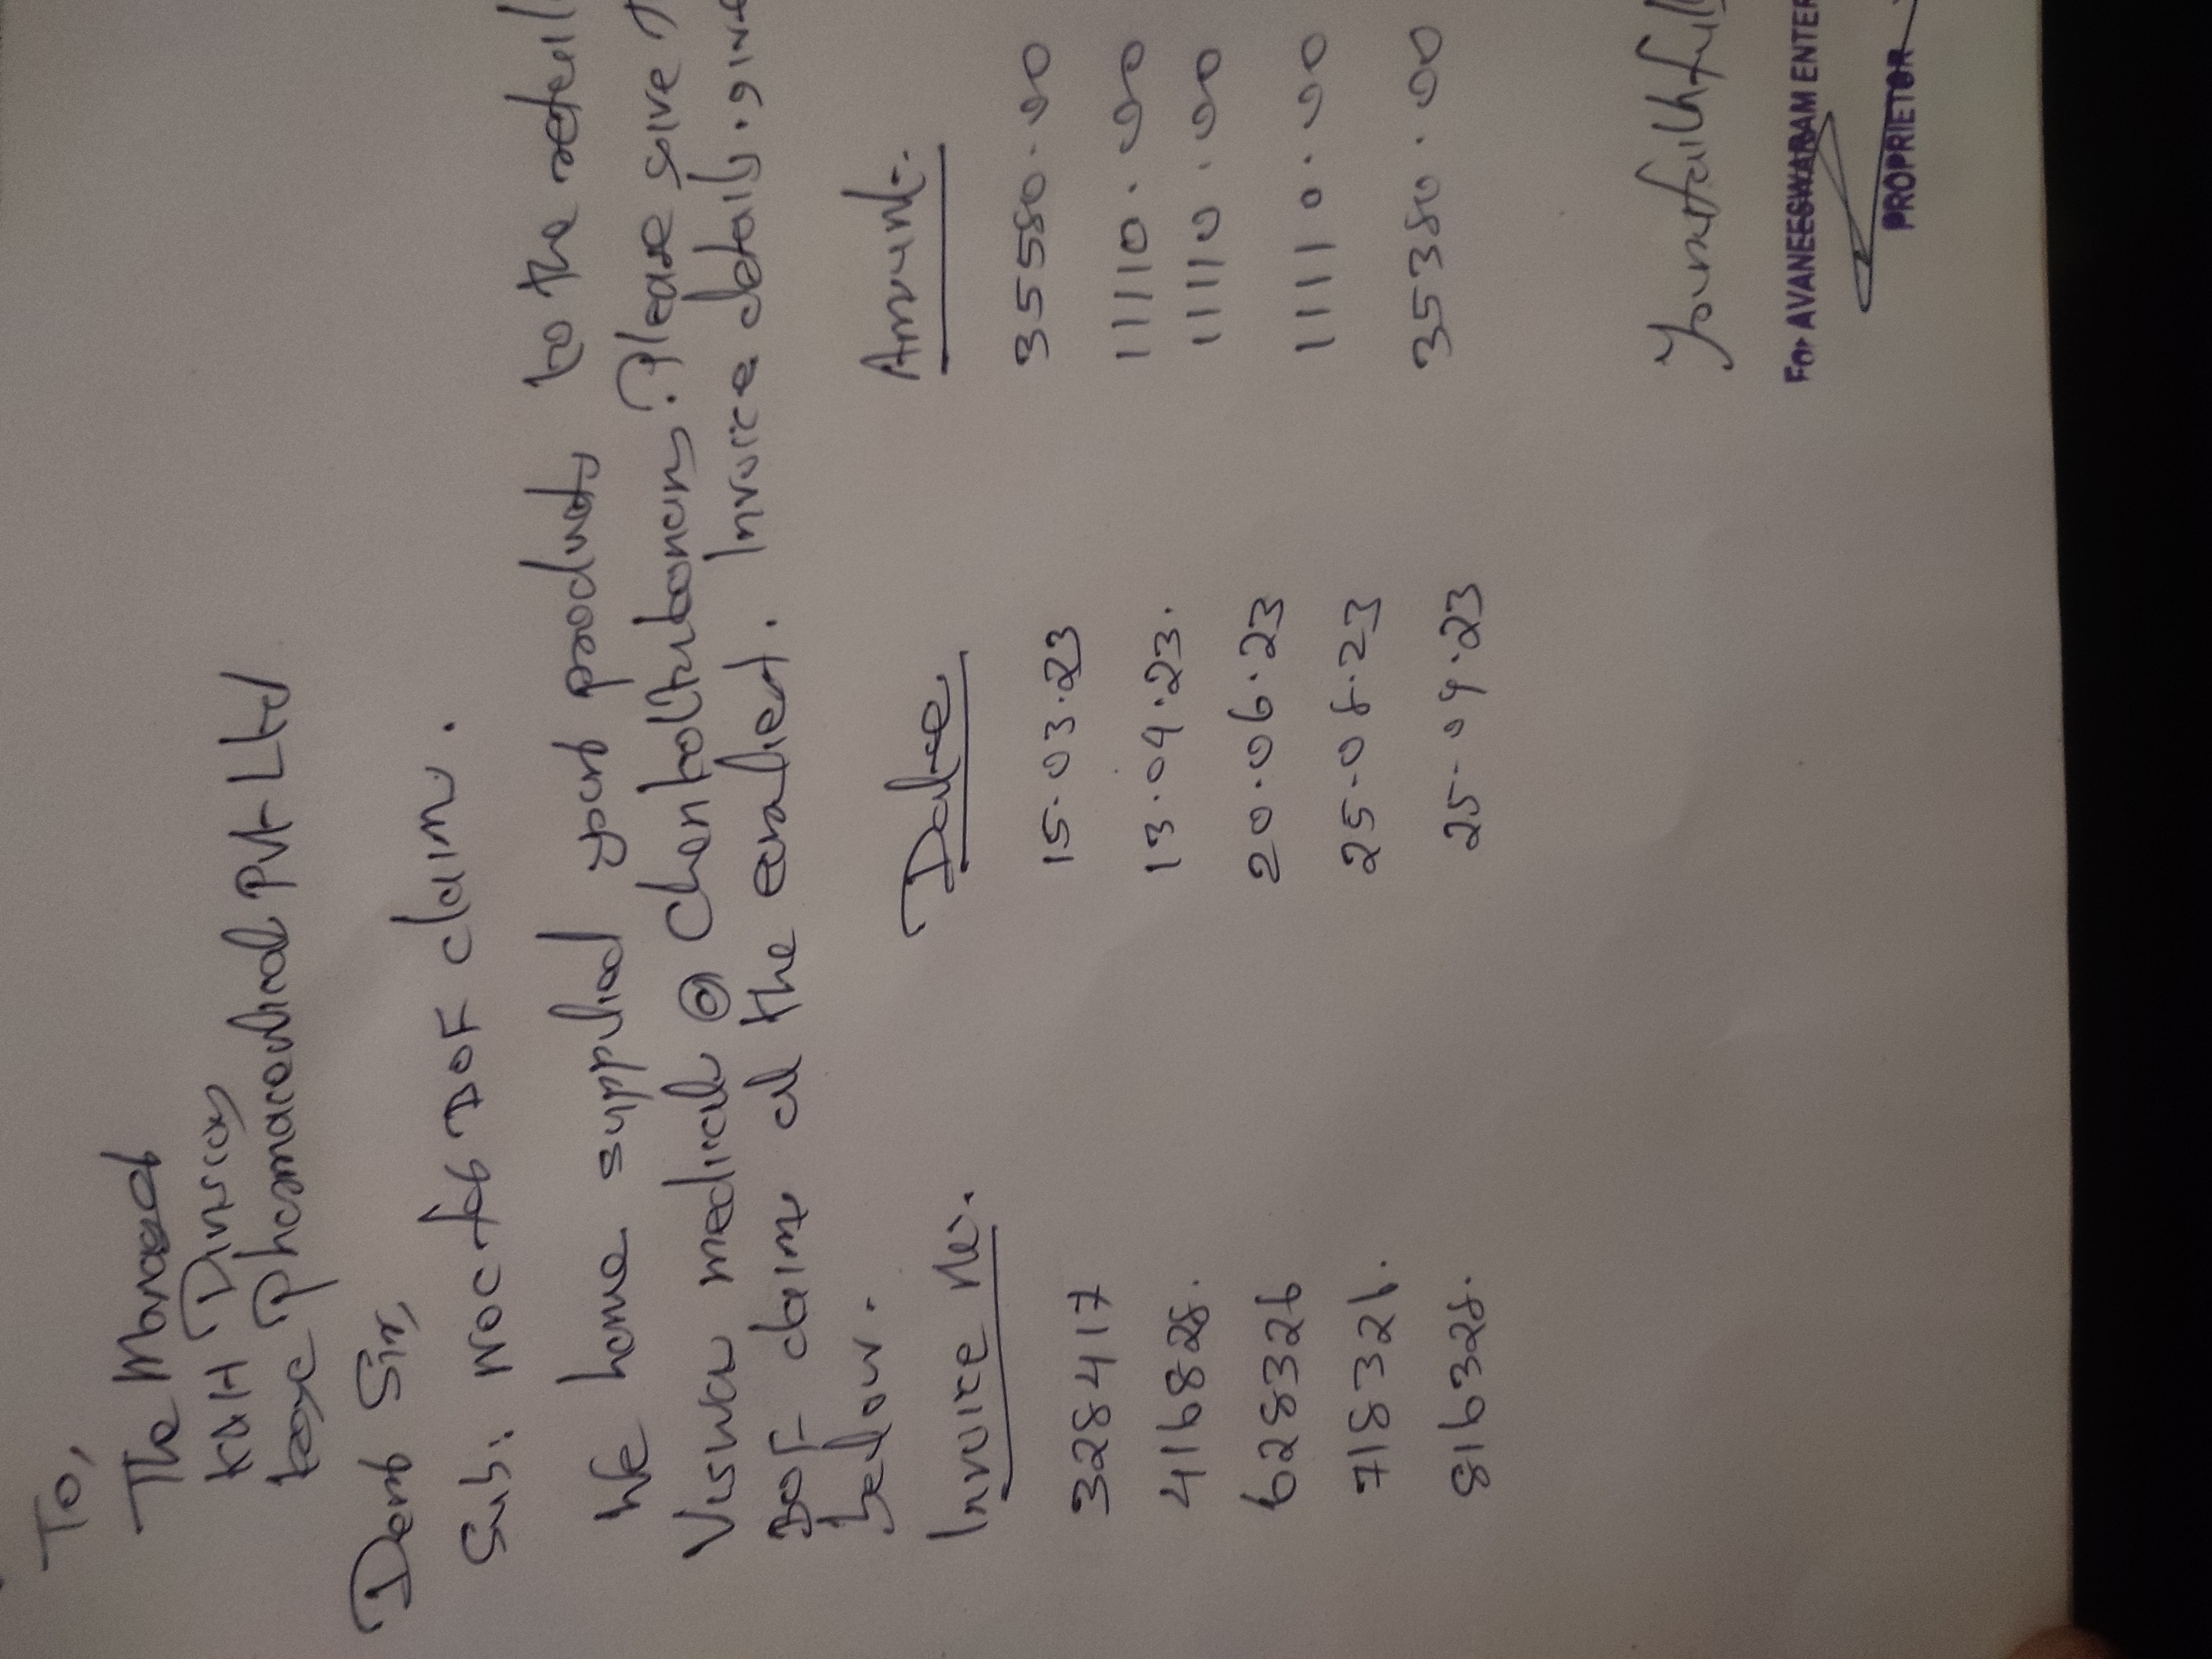 To,
The Manager
KUH Division
Pharmaceutical Pvt Ltd
Dear Sir,
Sub: NOC for DOF claim.
We have supplied your products to the retail
Viswa medicals @ Chentatturbanam. Please give
DOF claim at the earliest. Invoice details give
below.
Invoice No. Date Amount.
328417 15.03.23 35580.00
416828. 13.04.23. 11110.00
11110.00
628326 20.06.23 11110.00
718326. 25.08.23 35380.00
816328. 25.09.23
Yours faithfull
For AVANEESWARAM ENTER
PROPRIETOR